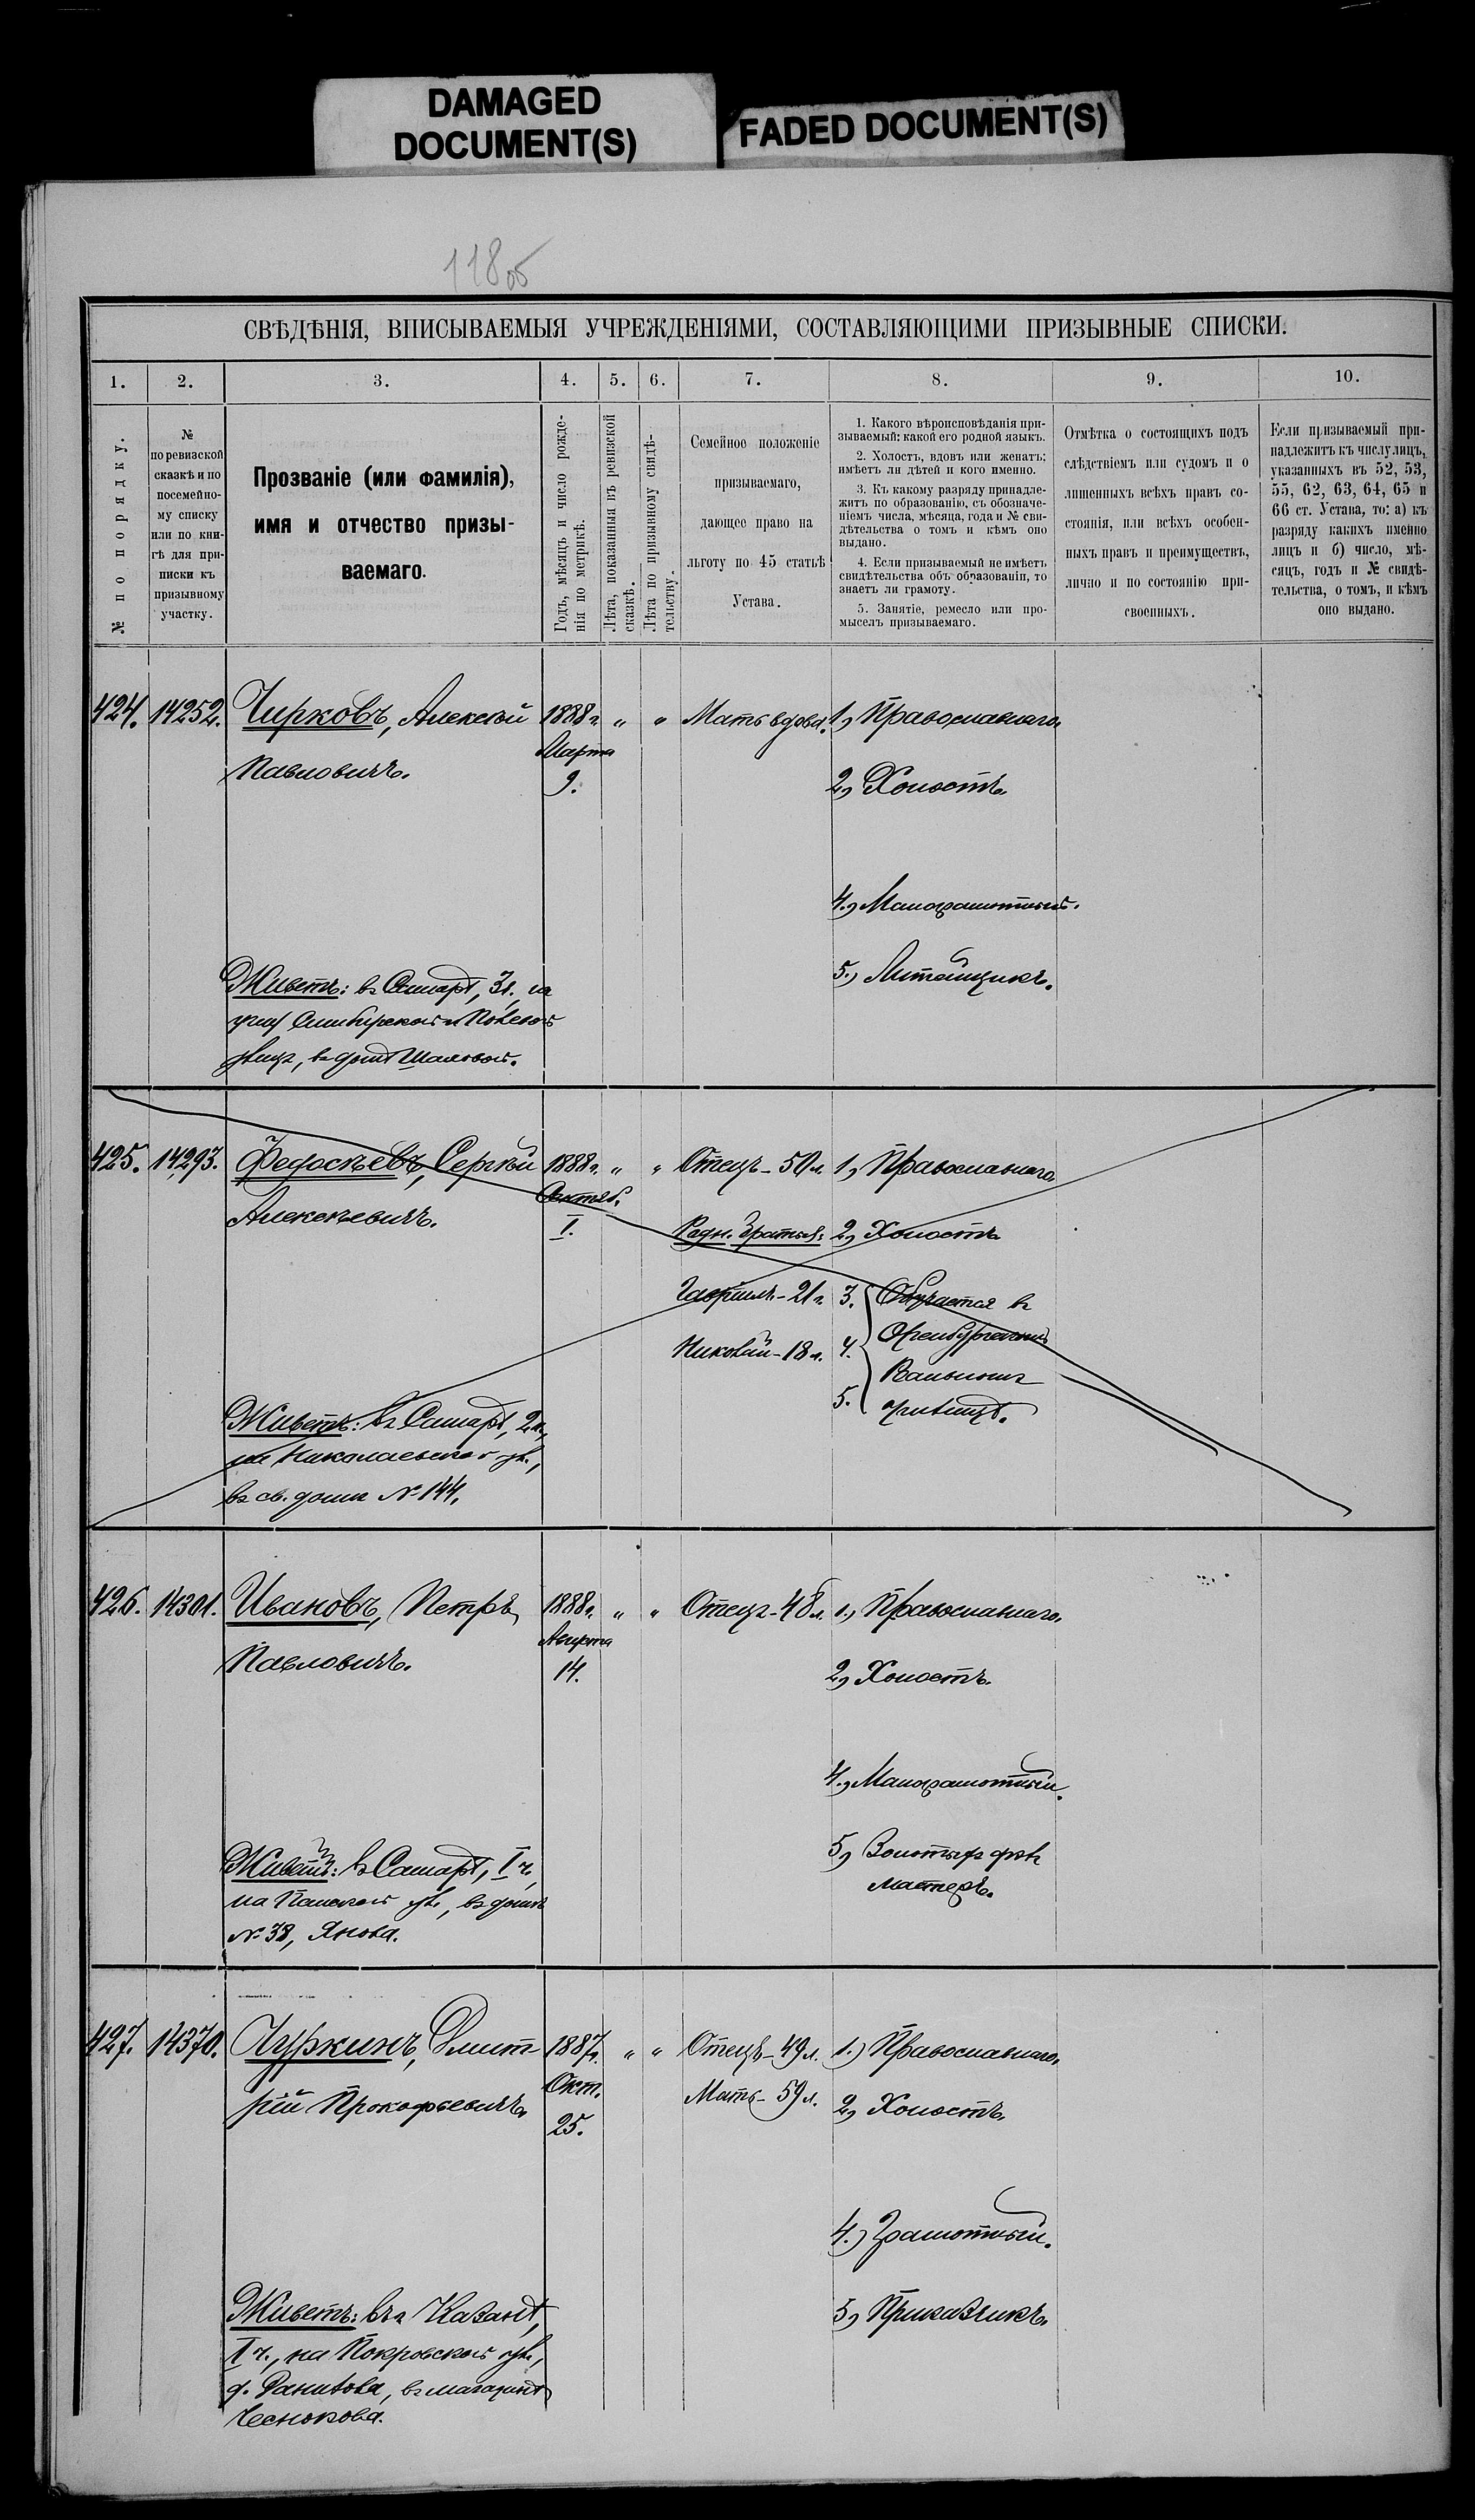 DAMAGED
DOCUMENT(S)
FADED DOCUMENT(S)
118об
СВѢДѢНІЯ, ВПИСЫВАЕМЫЯ УЧРЕЖДЕНІЯМИ, СОСТАВЛЯЮЩИМИ ПРИЗЫВНЫЕ СПИСКИ.
1. 2. 3. 4. 5. 6. 7. 8. 9. 10.
№ по порядку.
№
по ревизской
сказкѣ и по
посемейно-
му списку
или по кни-
гѣ для при-
писки къ
призывному
участку.
Прозваніе (или фамилія),
имя и отчество призы-
ваемаго.
Годъ, мѣсяцъ и число рожде-
нія по метрикѣ.
Лѣта, показанныя въ ревизской
сказкѣ.
Лѣта по призывному свидѣ-
тельству.
Семейное положеніе
призываемаго,
дающее право на
льготу по 45 статьѣ
Устава.
1. Какого вѣроисповѣданія при-
зываемый: какой его родной языкъ.
2. Холостъ, вдовъ или женатъ;
имѣетъ ли дѣтей и кого именно.
3. Къ какому разряду принадле-
житъ по образованію, съ обозначе-
ніемъ числа, мѣсяца, года и № сви-
дѣтельства о томъ и кѣмъ оно
выдано.
4. Если призываемый не имѣетъ
свидѣтельства объ образованіи, то
знаетъ ли грамоту.
5. Занятіе, ремесло или про-
мыселъ призываемаго.
Отмѣтка о состоящихъ подъ
слѣдствіемъ или судомъ и о
лишенныхъ всѣхъ правъ со-
стоянія, или всѣхъ особен-
ныхъ правъ и преимуществъ,
лично и по состоянію при-
своенныхъ.
Если призываемый при-
надлежитъ къ числу лицъ,
указанныхъ въ 52, 53,
55, 62, 63, 64, 65 и
66 ст. Устава, то: а) къ
разряду какихъ именно
лицъ и б) число, мѣ-
сяцъ, годъ и № свидѣ-
тельства, о томъ, и кѣмъ
оно выдано.
424. 14252. Чирковъ, Алексѣй 1888г. „ „ Мать вдова. 1) Православнаго.
Павловичъ. Марта
9. 2) Холостъ.
4.) Малограмотный.
5.) Литейщикъ.
Живетъ: въ Самарѣ, 3ч. на
углу Симбирской и Полевой
улицъ, въ домѣ Шаловой.
425. 14293. Федосѣевъ, Сергѣй 1888г. „ „ Отецъ - 50л. 1) Православнаго.
Алексѣевичъ. Сентяб.
1. Родн. братья: 2) Холостъ
Гавріилъ - 21г. 3. Обучается въ
Николай - 18л. 4. Оренбургскомъ
5. Казенномъ
училищѣ.
Живетъ: въ Самарѣ, 2ч.,
на Николаевской ул.,
въ св. домѣ № 144.
426. 14301. Ивановъ, Петръ 1888г. „ „ Отецъ - 48л. 1.) Православнаго.
Павловичъ. Августа
14. 2) Холостъ.
4.) Малограмотный.
5) Золотыхъ дѣлъ
мастеръ.
Живетъ: въ Самарѣ, I ч,
на Панской ул., въ домѣ
№ 38, Янова.
427. 14370. Чуркинъ, Дмит- 1887г. „ „ Отецъ - 49л. 1.) Православнаго.
рій Прокофьевичъ. Окт. Мать - 59л. 2) Холостъ.
25.
4.) Грамотный.
5) Приказчикъ.
Живетъ: въ Казани,
I ч., на Покровской ул.,
д. Данилова, въ магазинѣ
Чеснокова.